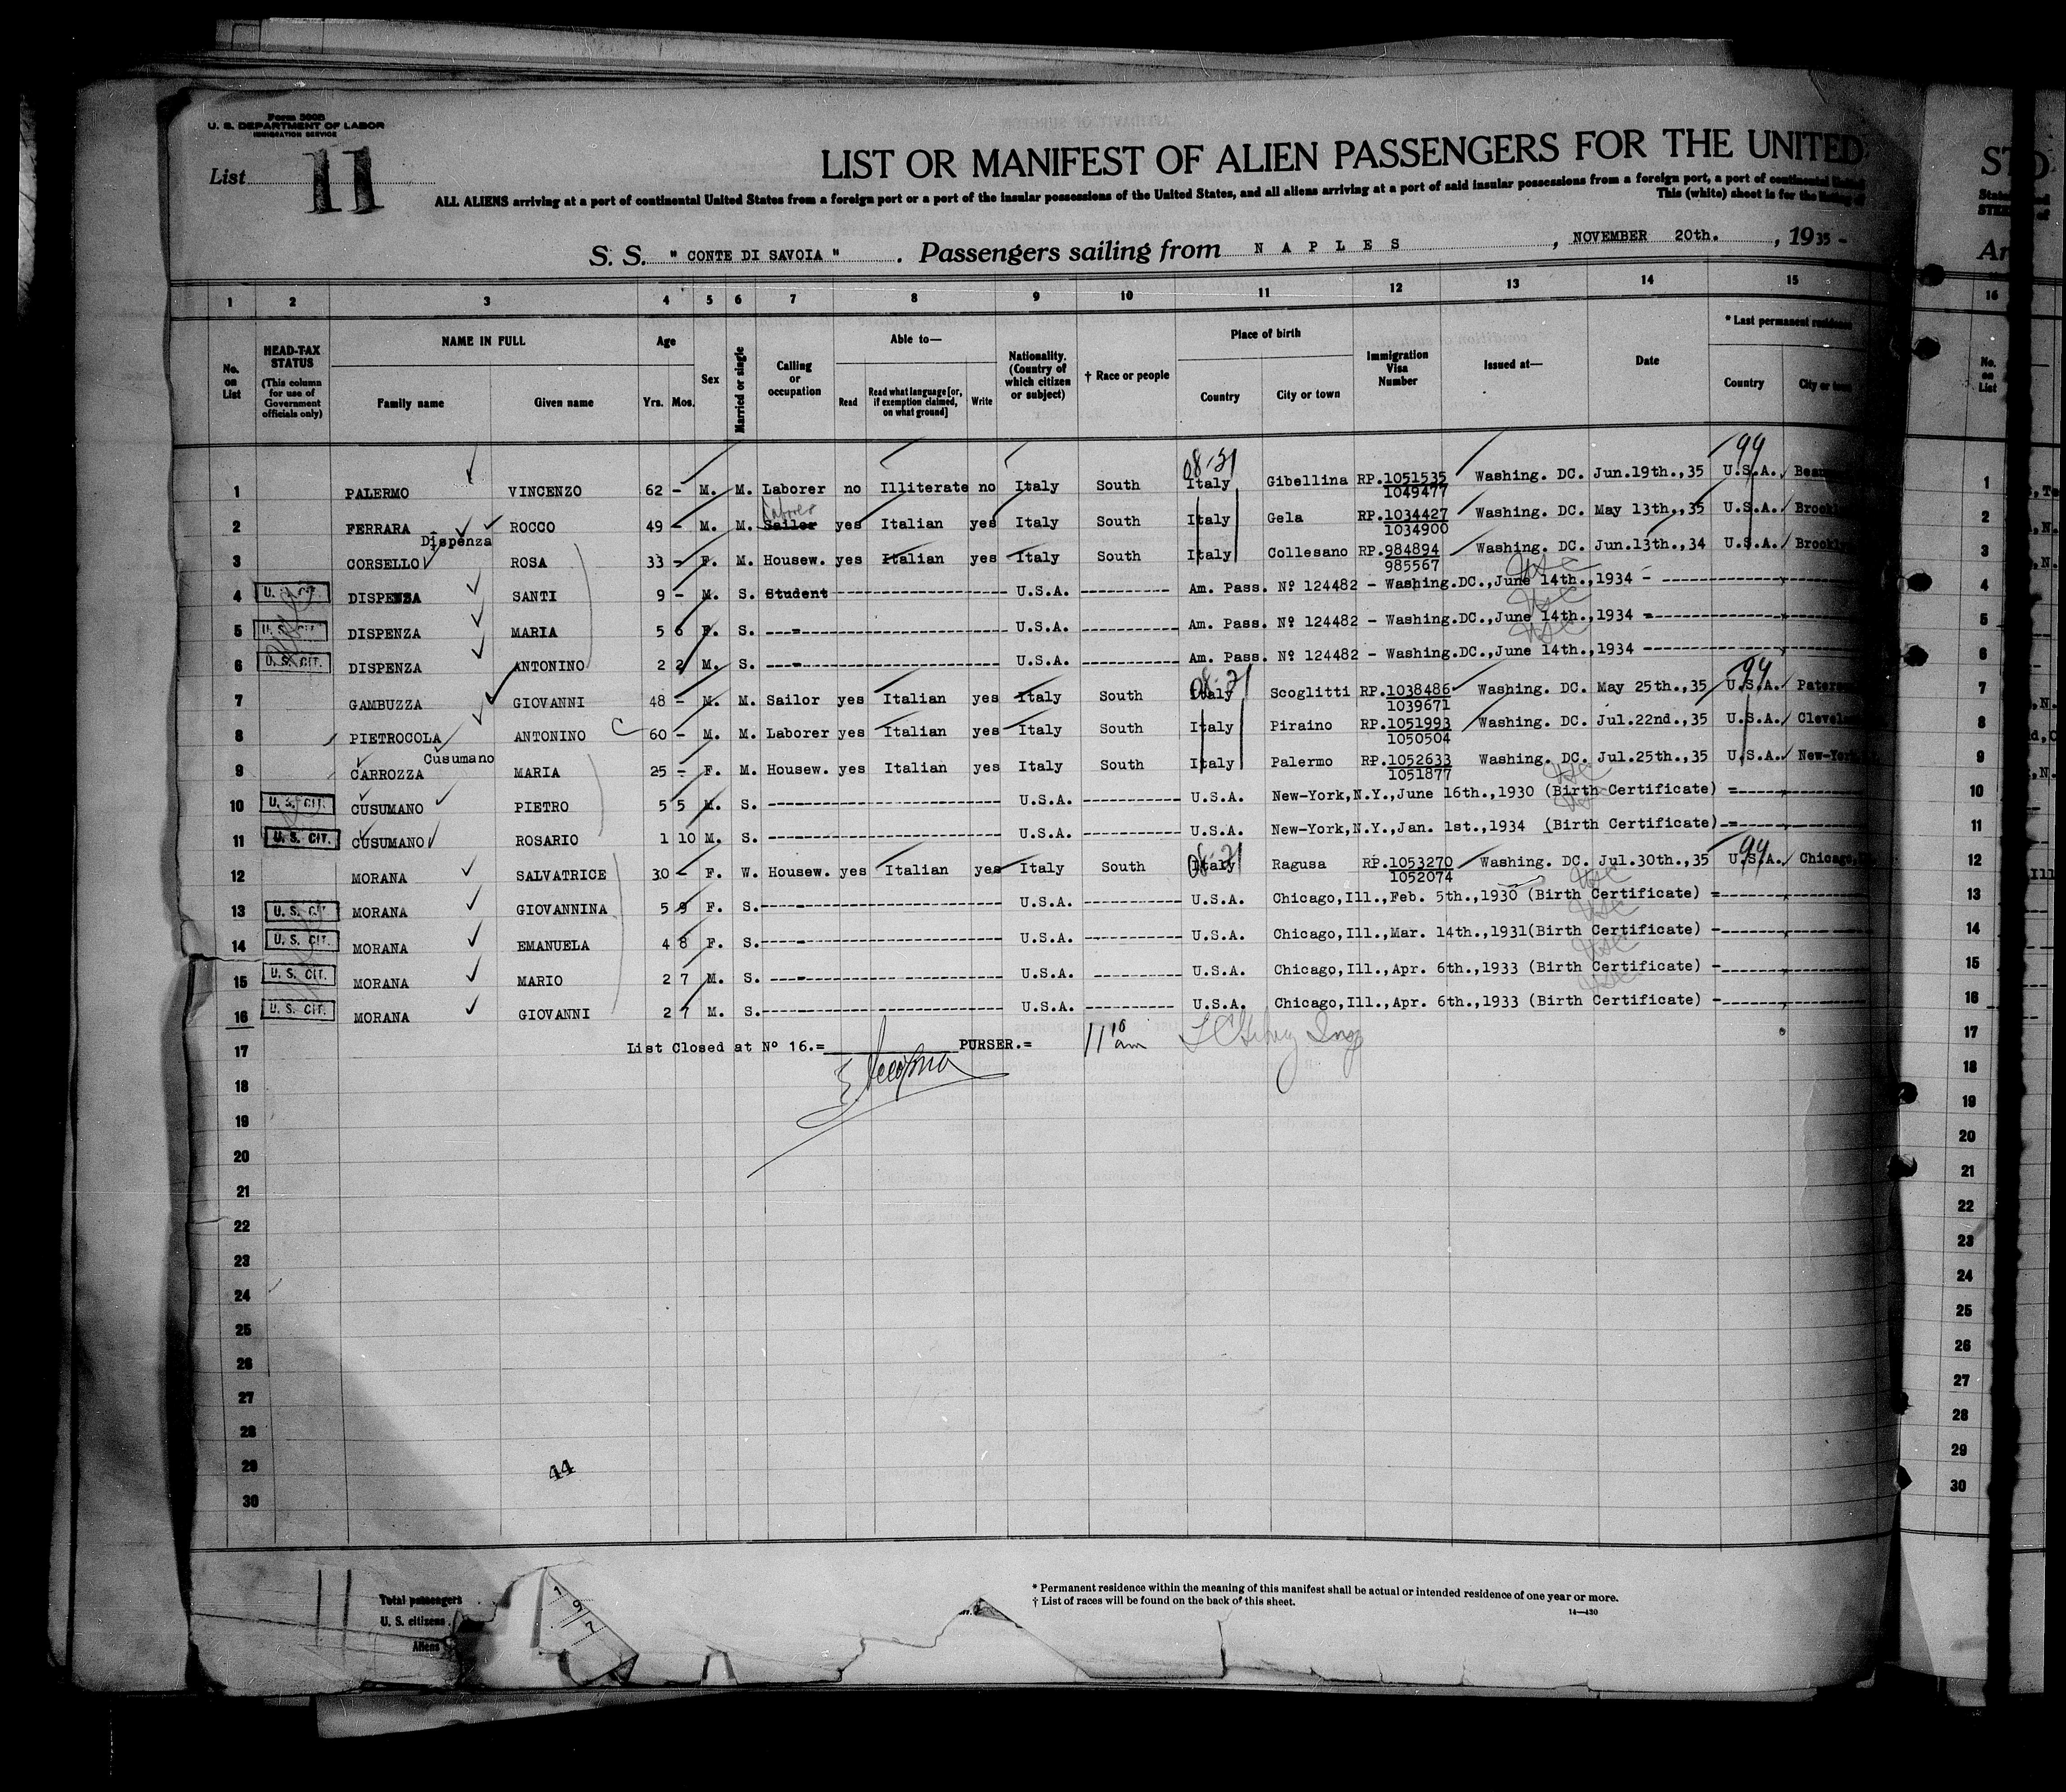 Form 500B
U. S. DEPARTMENT OF LABOR
IMMIGRATION SERVICE
List 11
LIST OR MANIFEST OF ALIEN PASSENGERS FOR THE UNITED
ALL ALIENS arriving at a port of continental United States from a foreign port or a port of the insular possessions of the United States, and all aliens arriving at a port of said insular possessions from a foreign port, a port of continental
This (white) sheet is for the listing of
S. S. " CONTE DI SAVOIA " . Passengers sailing from N A P L E S , NOVEMBER 20th. , 1935 -
1 2 3 4 5 6 7 8 9 10 11 12 13 14 15 16
No. on List
HEAD-TAX STATUS (This column for use of Government officials only)
NAME IN FULL
Family name Given name
Age
Yrs. Mos.
Sex
Married or single
Calling or occupation
Able to—
Read Read what language [or, if exemption claimed, on what ground] Write
Nationality. (Country of which citizen or subject)
† Race or people
Place of birth
Country City or town
Immigration Visa Number
Issued at—
Date
* Last permanent residence
Country City or town
No. on List
08-21 99
1 PALERMO VINCENZO 62 - M. M. Laborer no Illiterate no Italy South Italy Gibellina RP.1051535 Washing. DC. Jun.19th.,35 U.S.A. 1
1049477
Laborer
2 FERRARA ROCCO 49 - M. M. Sailor yes Italian yes Italy South Italy Gela RP.1034427 Washing. DC. May 13th.,35 U.S.A. Brook 2
1034900
Dispenza
3 CORSELLO ROSA 33 - F. M. Housew. yes Italian yes Italy South Italy Collesano RP.984894 Washing. DC. Jun.13th.,34 U.S.A. Brookly 3
985567
USC
4 U. S. CIT. DISPENZA SANTI 9 - M. S. Student U.S.A. Am. Pass. Nº 124482 - Washing.DC.,June 14th.,1934 - 4
USC
5 U. S. CIT. DISPENZA MARIA 5 6 F. S. U.S.A. Am. Pass. Nº 124482 - Washing.DC.,June 14th.,1934 5
USC
6 U. S. CIT. DISPENZA ANTONINO 2 2 M. S. U.S.A. Am. Pass. Nº 124482 - Washing.DC.,June 14th.,1934 6
08-21 99
7 GAMBUZZA GIOVANNI 48 - M. M. Sailor yes Italian yes Italy South Italy Scoglitti RP.1038486 Washing. DC. May 25th.,35 U.S.A. Paters 7
1039671
8 PIETROCOLA ANTONINO C 60 - M. M. Laborer yes Italian yes Italy South Italy Piraino RP.1051993 Washing. DC. Jul.22nd.,35 U.S.A. Clevel 8
1050504
Cusumano
9 CARROZZA MARIA 25 - F. M. Housew. yes Italian yes Italy South Italy Palermo RP.1052633 Washing. DC. Jul.25th.,35 U.S.A. New-York 9
1051877
USC
10 U. S. CIT. CUSUMANO PIETRO 5 5 M. S. U.S.A. U.S.A. New-York,N.Y.,June 16th.,1930 (Birth Certificate) 10
USC
11 U. S. CIT. CUSUMANO ROSARIO 1 10 M. S. U.S.A. U.S.A. New-York,N.Y.,Jan. 1st.,1934 (Birth Certificate) 11
08-21 99
12 MORANA SALVATRICE 30 - F. W. Housew. yes Italian yes Italy South Italy Ragusa RP.1053270 Washing. DC. Jul.30th.,35 U.S.A. Chicago, 12
1052074
USC
13 U. S. CIT MORANA GIOVANNINA 5 9 F. S. U.S.A. U.S.A. Chicago,Ill.,Feb. 5th.,1930 (Birth Certificate) 13
USC
14 U. S. CIT. MORANA EMANUELA 4 8 F. S. U.S.A. U.S.A. Chicago,Ill.,Mar. 14th.,1931(Birth Certificate) 14
USC
15 U. S. CIT. MORANA MARIO 2 7 M. S. U.S.A. U.S.A. Chicago,Ill.,Apr. 6th.,1933 (Birth Certificate) 15
USC
16 U. S. CIT. MORANA GIOVANNI 2 7 M. S. U.S.A. U.S.A. Chicago,Ill.,Apr. 6th.,1933 (Birth Certificate) 16
17 List Closed at Nº 16.= PURSER.= 11 10 am 17
18 18
19 19
20 20
21 21
22 22
23 23
24 24
25 25
26 26
27 27
28 28
29 44 29
30 30
Total passengers
U. S. citizens
Aliens
197
* Permanent residence within the meaning of this manifest shall be actual or intended residence of one year or more.
† List of races will be found on the back of this sheet.
14—430